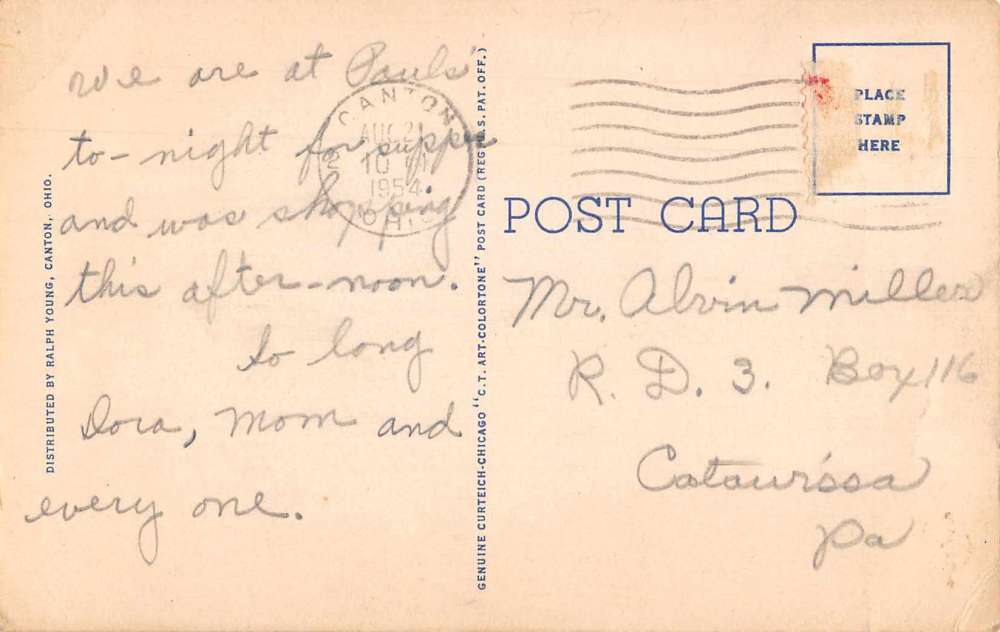 We are at Pauls'
to-night for supper
and was shopping
this after-noon.
So long
Dora, Mom and
every one.
CANTON
AUG 21
1954
OHIO
PLACE
STAMP
HERE
POST CARD
Mr. Alvin Miller
R. D. 3. Box 116
Catawissa
Pa
DISTRIBUTED BY RALPH YOUNG, CANTON, OHIO.
GENUINE CURTEICH-CHICAGO "C.T. ART-COLORTONE" POST CARD (REG. U.S. PAT. OFF.)